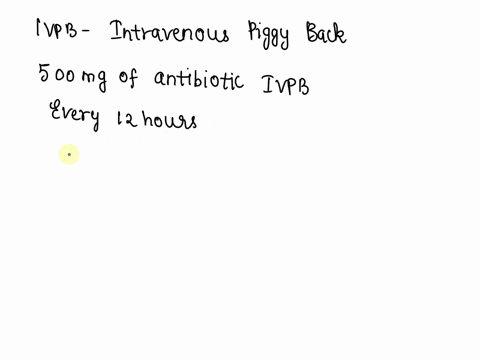 IVPB - Intravenous Piggy Back
500 mg of antibiotic IVPB
Every 12 hours